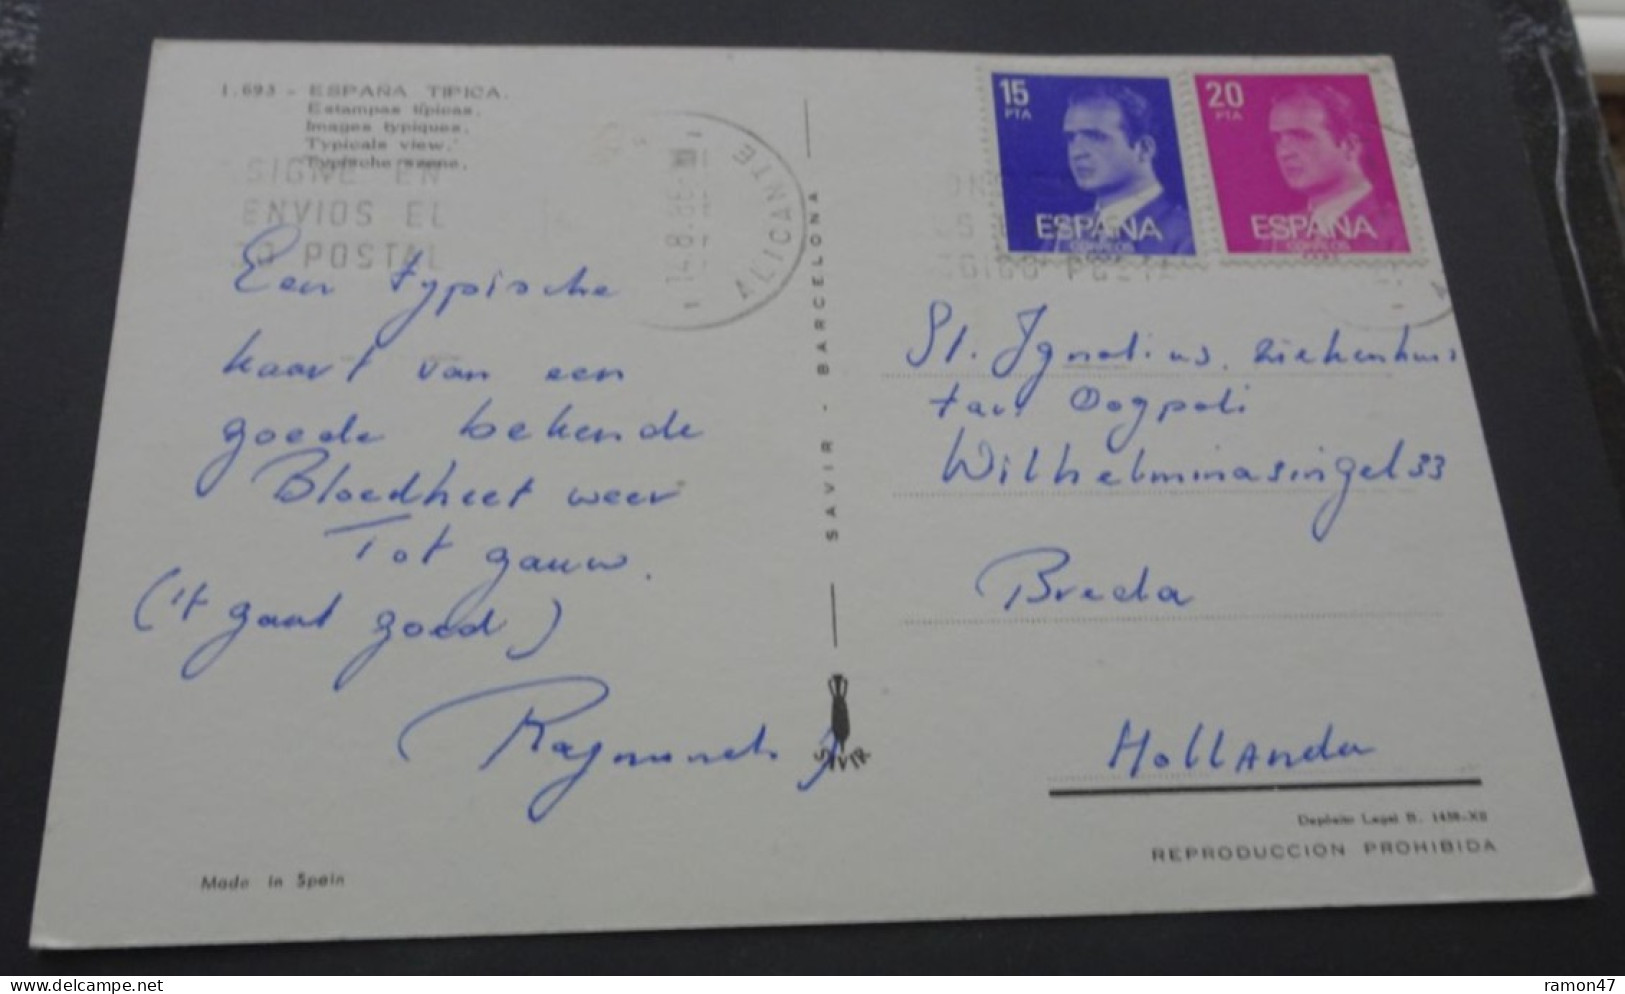 1.693 - ESPAÑA TIPICA.
Estampas típicas.
Images typiques.
Typicals view.
Typische szene.
SIGNE EN
ENVIOS EL
GO POSTAL
14.8.86
ALICANTE
Een typische
kaart van een
goede bekende
Bloedheet weer
Tot gauw.
('t gaat goed)
Raymond
Made in Spain
SAVIR - BARCELONA
SAVIR
15
PTA
ESPAÑA
CORREOS
20
PTA
ESPAÑA
CORREOS
St. Ignatius. ziekenhuis
tav. Oogpoli
Wilhelminasingel 33
Breda
Hollanda
Depósito Legal B. 1458-XII
REPRODUCCION PROHIBIDA
ramon47